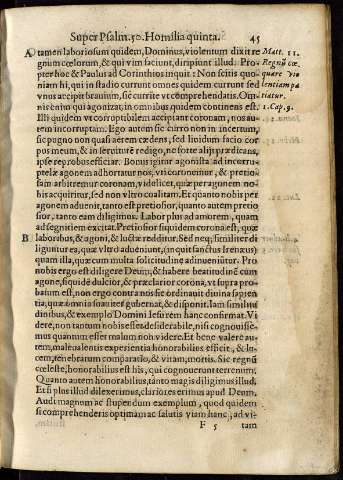 Super Psalm. 50. Homilia quinta. 45
A tamen laboriosum quidem, Dominus, violentum dixit re Matt. 11.
gnum cœlorum, & qui vim faciunt, diripiunt illud. Pro- Regnũ cœ
pter hoc & Paulus ad Corinthios inquit: Non scitis quo quare vio
niam hi, qui in stadio currunt omnes quidem currunt sed lentiam pa
vnus accipit brauium, sic currite vt comprehendatis. Om tiatur.
nis enim qui agonizat, in omnibus quidem continens est: 1. Cap. 9.
Illi quidem vt corruptibilem accipiant coronam, nos au-
tem incorruptam. Ego autem sic curro non in incertum,
sic pugno non quasi aërem cædens, sed liuidum facio cor
pus meum, & in seruitutẽ redigo, ne forte alijs prædicans,
ipse reprobus efficiar. Bonus igitur agonista ad incorru-
ptelæ agonem adhortatur nos, vti coronemur, & pretio-
sam arbitremur coronam, videlicet, quæ per agonem no-
bis acquiritur, sed non vltro coalitam. Et quanto nobis per
agonem aduenit, tanto est pretiosior, quanto autem pretio
sior, tanto eam diligimus. Labor plus ad amorem, quam
ad segnitiem excitat. Pretiosior siquidem corona est, quæ
B laboribus, & agoni, & luctæ redditur. Sed neq; similiter di
liguntur ea, quæ vltrò adueniunt, (inquit sanctus Irenæus)
quam illa, quæ cum multa solicitudine adinueniũtur. Pro
nobis ergo est diligere Deum, & habere beatitudinẽ cum
agone, siquidẽ dulcior, & præclarior corona, vt supra pro-
batum est, non ergo contra nos sic ordinauit diuina sapien
tia, quæ omnia suauiter gubernat, & disponit. Iam similitu
dinibus, & exemplo Domini Iesu rem hanc confirmat. Vi
dere, non tantum nobis esset desiderabile, nisi cognouisse-
mus quantum esset malum non videre. Et bene valere au-
tem, malè valentis experientia honorabilius efficit, & lu-
cem, tenebrarum comparatio, & vitam, mortis. Sic regnũ
cœleste, honorabilius est his, qui cognouerunt terrenum.
Quanto autem honorabilius, tanto magis diligimus illud.
Et si plus illud dilexerimus, clariores erimus apud Deum.
Audi magnum ac stupendum exemplum, quod quidem
si comprehenderis optimam ac salutis viam hanc, ad vi-
F 5 tam